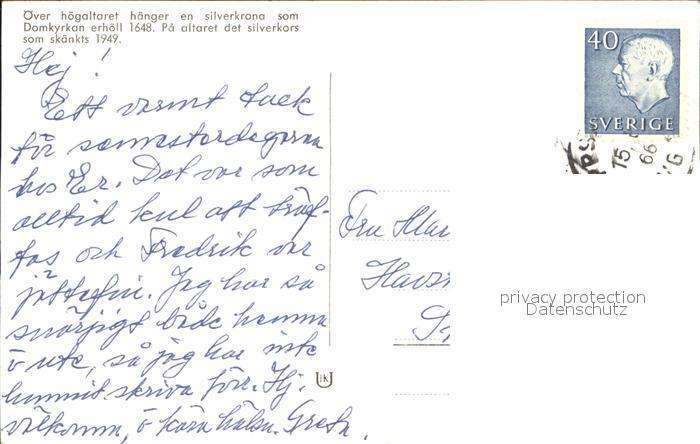 Över högaltaret hänger en silverkrona som
Domkyrkan erhöll 1648. På altaret det silverkors
som skänkts 1949.
Hej!
Ett varmt tack
för semesterdagarna
hos Er. Det var som
alltid kul att träf-
fas och Fredrik var
jättefin. Jag har så
snärjigt både hemma
o ute, så jag har inte
hunnit skriva förr. Hj.
välkomna, o kära hälsn. Greta.
40
SVERIGE
75
66
Fru
privacy protection
Datenschutz